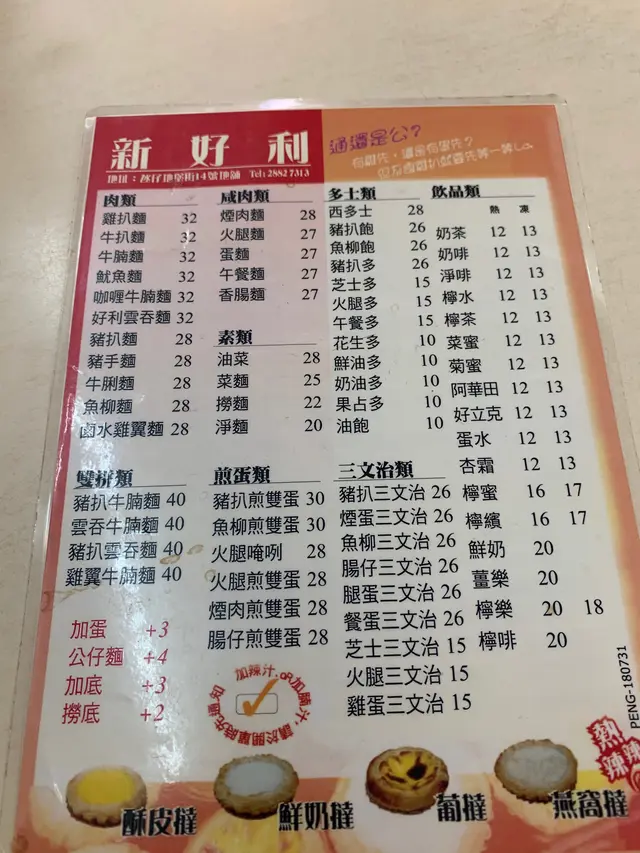 新好利
地址：氹仔地堡街14號地舖 Tel: 2882 7313
通還是公？
肉類
雞扒麵 32
牛扒麵 32
牛腩麵 32
魷魚麵 32
咖喱牛腩麵 32
好利雲吞麵 32
豬扒麵 28
豬手麵 28
牛脷麵 28
魚柳麵 28
鹵水雞翼麵 28
咸肉類
煙肉麵 28
火腿麵 27
蛋麵 27
午餐麵 27
香腸麵 27
素類
油菜 28
菜麵 25
撈麵 22
淨麵 20
多士類
西多士 28
豬扒飽 26
魚柳飽 26
豬扒多 26
芝士多 15
火腿多 15
午餐多 15
花生多 10
鮮油多 10
奶油多 10
果占多 10
油飽 10
飲品類
熱 凍
奶茶 12 13
奶啡 12 13
淨啡 12 13
檸水 12 13
檸茶 12 13
菜蜜 12 13
菊蜜 12 13
阿華田 12 13
好立克 12 13
蛋水 12 13
杏霜 12 13
檸蜜 16 17
檸繽 16 17
鮮奶 20
薑樂 20
檸樂 20 18
檸啡 20
雙拼類
豬扒牛腩麵 40
雲吞牛腩麵 40
豬扒雲吞麵 40
雞翼牛腩麵 40
加蛋 +3
公仔麵 +4
加底 +3
撈底 +2
煎蛋類
豬扒煎雙蛋 30
魚柳煎雙蛋 30
火腿唵咧 28
火腿煎雙蛋 28
煙肉煎雙蛋 28
腸仔煎雙蛋 28
加辣汁，OR加腩汁，請於開單時先通知
三文治類
豬扒三文治 26
煙蛋三文治 26
魚柳三文治 26
腸仔三文治 26
腿蛋三文治 26
餐蛋三文治 26
芝士三文治 15
火腿三文治 15
雞蛋三文治 15
PENG-180731
熱辣辣
酥皮撻
鮮奶撻
葡撻
燕窩撻